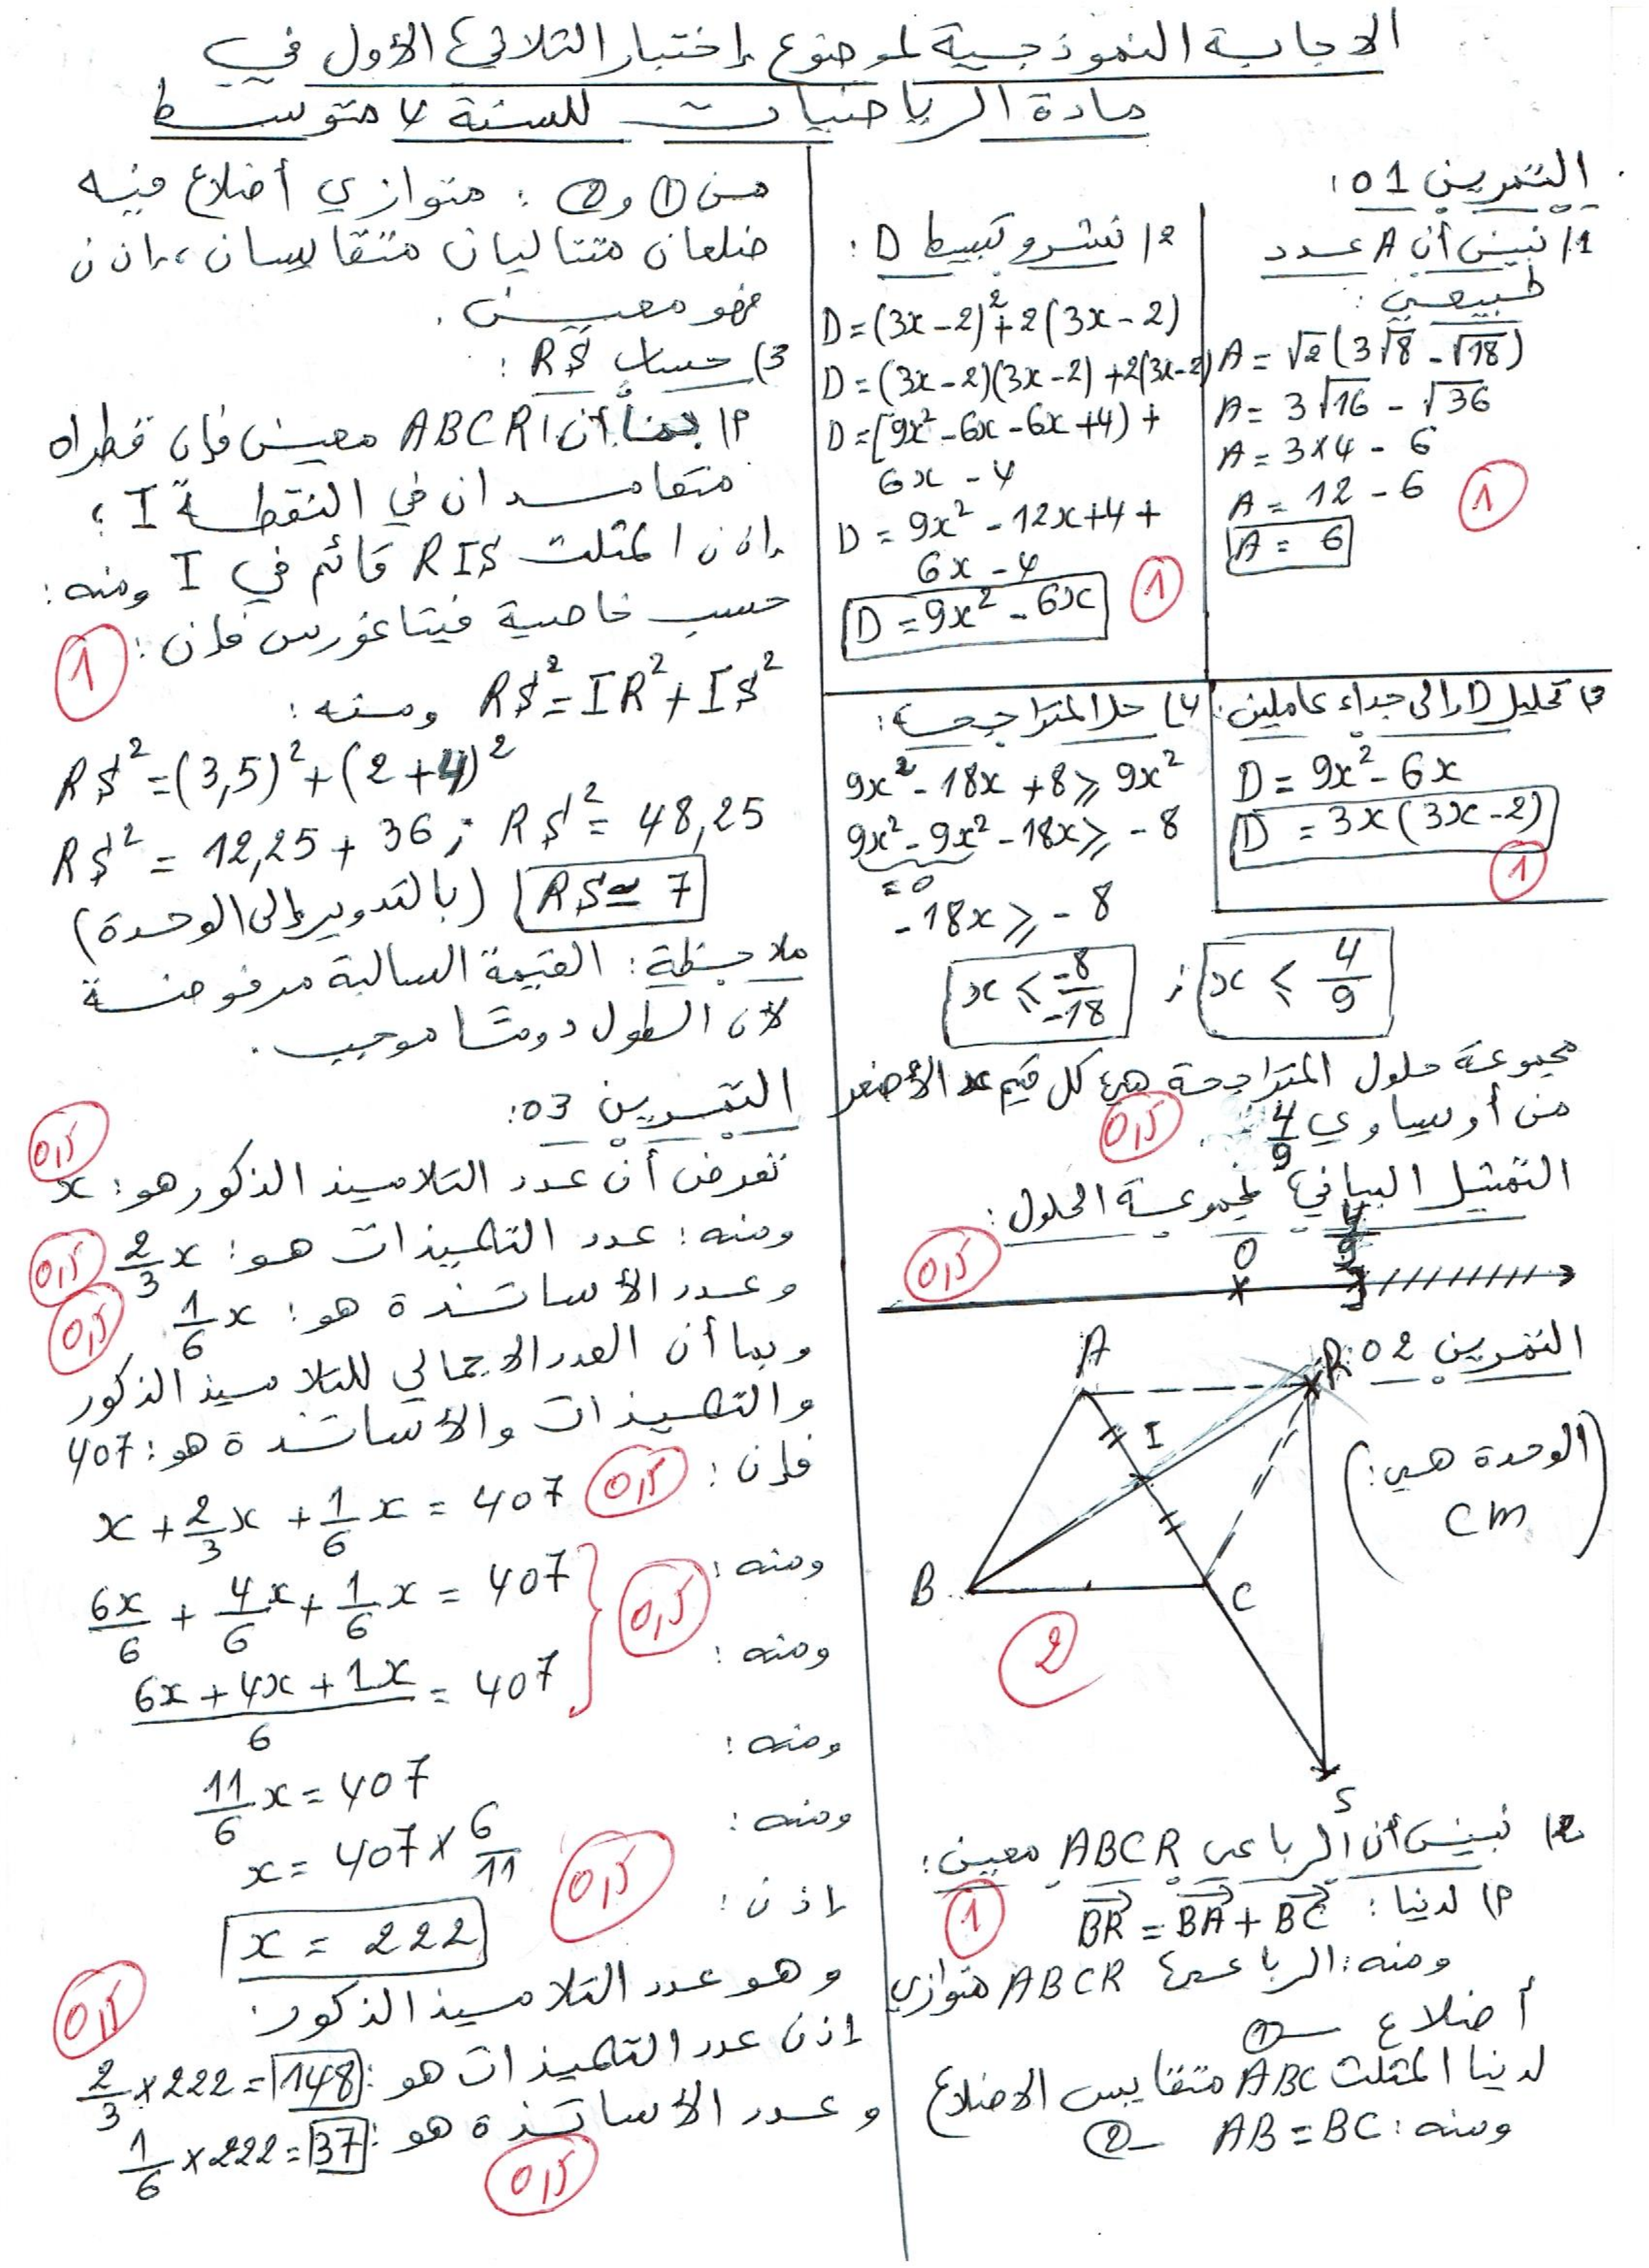 الاجابة النموذجية لموضوع إختبار الثلاثي الأول في
مادة الرياضيات للسنة 4 متوسط
التمرين 01:
1/ نبين أن A عدد
طبيعي:
A = √2(3√8 - √18)
A = 3√16 - √36
A = 3×4 - 6
A = 12 - 6
A = 6
1
2/ نشر و تبسيط D:
D = (3x-2)²+2(3x-2)
D = (3x-2)(3x-2)+2(3x-2)
D = (9x²-6x-6x+4)+
6x-4
D = 9x²-12x+4+
6x-4
D = 9x²-6x
1
3) تحليل D إلى جداء عاملين:
D = 9x²-6x
D = 3x(3x-2)
1
4) حل المتراجحة:
9x²-18x+8 ⩾ 9x²
9x²-9x²-18x ⩾ -8
=0
-18x ⩾ -8
x ⩽ -8/-18 ; x ⩽ 4/9
مجموعة حلول المتراجحة هي كل قيم x الأصغر
من أو يساوي 4/9
0,5
التمثيل البياني لمجموعة الحلول:
0,5
0 4/9
التمرين 02:
(الوحدة هي:
cm)
A
R
I
B
C
S
2
2) نبين أن الرباعي ABCR معين:
1
م) لدينا: BR = BA + BC
ومنه: الرباعي ABCR متوازي
أضلاع —①
لدينا المثلث ABC متقايس الاضلاع
ومنه: AB = BC —②
من ① و ②: متوازي أضلاع فيه
ضلعان متتاليان متقايسان، إذن
فهو معين.
3) حساب RS:
م) بما أن ABCR معين فإن قطراه
متعامدان في النقطة I؛
إذن المثلث RIS قائم في I ومنه:
حسب خاصية فيتاغورس فإن:
1
RS² = IR² + IS² ومنه:
RS² = (3,5)² + (2+4)²
RS² = 12,25 + 36 ; RS² = 48,25
RS ≃ 7 (بالتدوير إلى الوحدة)
ملاحظة: القيمة السالبة مرفوضة
لأن الطول دومًا موجب.
التمرين 03:
0,5
نفرض أن عدد التلاميذ الذكور هو: x
ومنه: عدد التلميذات هو: 2/3 x
0,5
وعدد الأساتذة هو: 1/6 x
0,5
وبما أن العدد الاجمالي للتلاميذ الذكور
والتلميذات والأساتذة هو: 407
فإن:
x + 2/3 x + 1/6 x = 407
0,5
ومنه:
6x/6 + 4/6 x + 1/6 x = 407
0,5
ومنه:
6x+4x+1x/6 = 407
ومنه:
11/6 x = 407
ومنه:
x = 407 × 6/11
0,5
إذن:
x = 222
وهو عدد التلاميذ الذكور.
0,5
إذن عدد التلميذات هو: 2/3 × 222 = 148
وعدد الأساتذة هو: 1/6 × 222 = 37
0,5